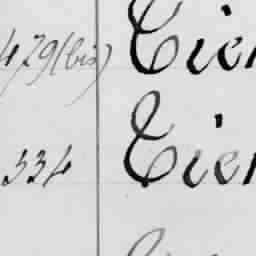 479(bis) Tier
334 Tier